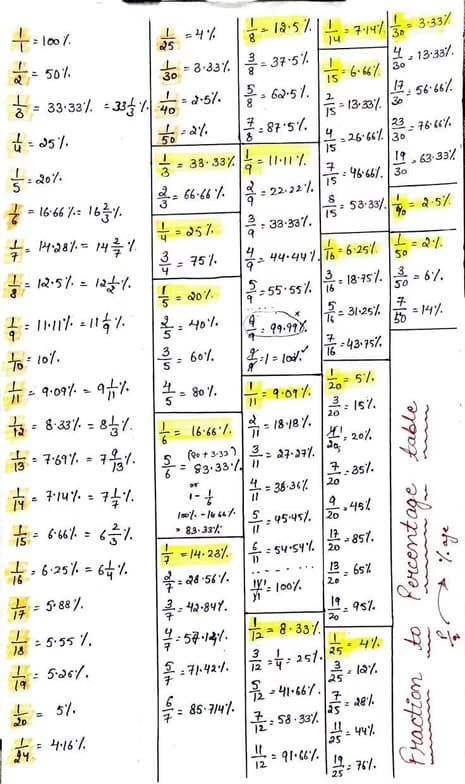 1/1 = 100%
1/2 = 50%
1/3 = 33.33% = 33 1/3 %
1/4 = 25%
1/5 = 20%
1/6 = 16.66% = 16 2/3
1/7 = 14.28% = 14 2/7 %
1/8 = 12.5% = 12 1/2 %
1/9 = 11.11% = 11 1/9 %
1/10 = 10%
1/11 = 9.09% = 9 1/11 %
1/12 = 8.33% = 8 1/3 %
1/13 = 7.69% = 7 9/13 %
1/14 = 7.14% = 7 1/7 %
1/15 = 6.66% = 6 2/3 %
1/16 = 6.25% = 6 1/4 %
1/17 = 5.88%
1/18 = 5.55%
1/19 = 5.26%
1/20 = 5%
1/24 = 4.16%
1/25 = 4%
1/30 = 3.33%
1/40 = 2.5%
1/50 = 2%
1/3 = 33.33%
2/3 = 66.66%
1/4 = 25%
3/4 = 75%
1/5 = 20%
2/5 = 40%
3/5 = 60%
4/5 = 80%
1/6 = 16.66%
5/6 = 83.33%
(80 + 3.33)
or
1 - 1/6
100% - 16.66%
= 83.33%
1/7 = 14.28%
2/7 = 28.56%
3/7 = 42.84%
4/7 = 57.12%
5/7 = 71.42%
6/7 = 85.714%
1/8 = 12.5%
3/8 = 37.5%
5/8 = 62.5%
7/8 = 87.5%
1/9 = 11.11%
2/9 = 22.22%
3/9 = 33.33%
4/9 = 44.44%
5/9 = 55.55%
9/9 = 99.99% x
9/9 = 1 = 100%
1/11 = 9.09%
2/11 = 18.18%
3/11 = 27.27%
4/11 = 36.36%
5/11 = 45.45%
6/11 = 54.54%
........
11/11 = 100%
1/12 = 8.33%
3/12 = 1/4 = 25%
5/12 = 41.66%
7/12 = 58.33%
11/12 = 91.66%
1/14 = 7.14%
1/15 = 6.66%
2/15 = 13.33%
4/15 = 26.66%
7/15 = 46.66%
8/15 = 53.33%
1/16 = 6.25%
3/16 = 18.75%
5/16 = 31.25%
7/16 = 43.75%
1/20 = 5%
3/20 = 15%
4/20 = 20%
7/20 = 35%
9/20 = 45%
17/20 = 85%
13/20 = 65%
19/20 = 95%
1/25 = 4%
3/25 = 12%
7/25 = 28%
11/25 = 44%
19/25 = 76%
1/30 = 3.33%
4/30 = 13.33%
17/30 = 56.66%
23/30 = 76.66%
19/30 = 63.33%
1/40 = 2.5%
1/50 = 2%
3/50 = 6%
7/50 = 14%
Fraction to Percentage table
% age